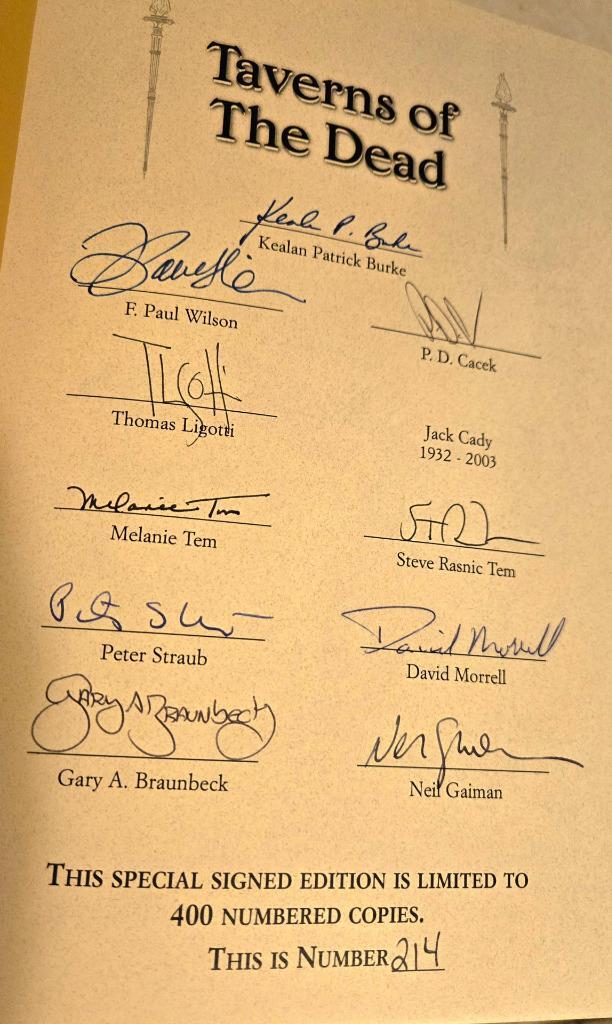 Taverns of
The Dead
Keal P. Burke
Kealan Patrick Burke
F. Paul Wilson
P. D. Cacek
Thomas Ligotti
Jack Cady
1932 - 2003
Melanie Tem
Melanie Tem
Steve Rasnic Tem
Peter Straub
David Morrell
David Morrell
Gary A Braunbeck
Gary A. Braunbeck
Neil Gaiman
THIS SPECIAL SIGNED EDITION IS LIMITED TO
400 NUMBERED COPIES.
THIS IS NUMBER 214